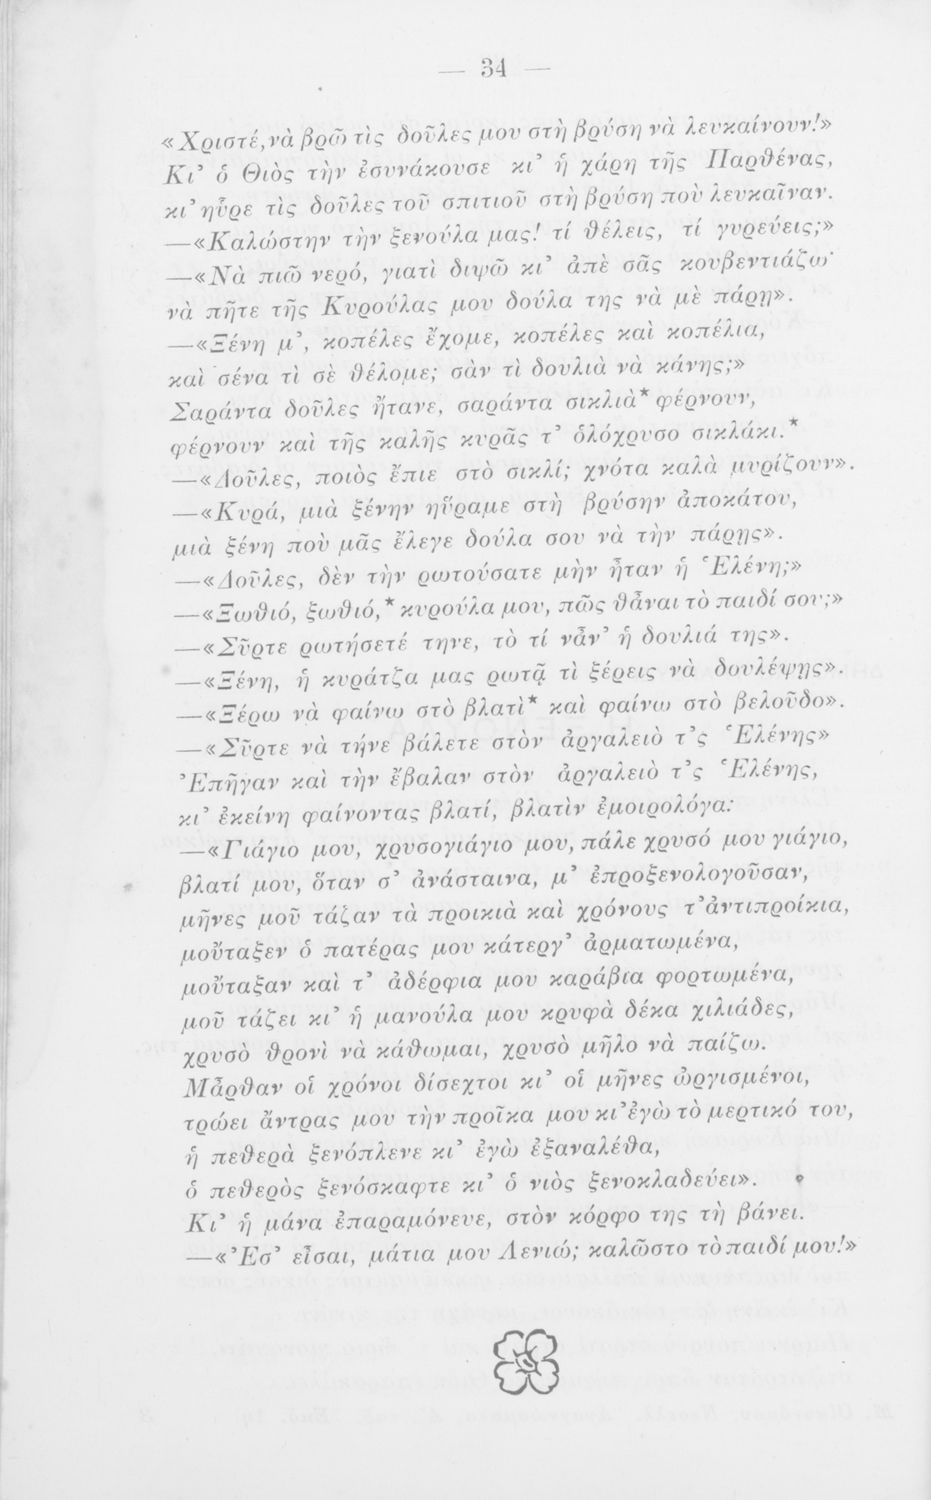 — 34 —
«Χριστέ, νὰ βρῶ τὶς δοῦλες μου στὴ βρύση νὰ λευκαίνουν!»
Κι’ ὁ Θιὸς τὴν ἐσυνάκουσε κι’ ἡ χάρη τῆς Παρθένας,
κι’ ηὗρε τὶς δοῦλες τοῦ σπιτιοῦ στὴ βρύση ποὺ λευκαῖναν.
—«Καλώστην τὴν ξενούλα μας! τί θέλεις, τί γυρεύεις;»
—«Νὰ πιῶ νερό, γιατὶ διψῶ κι’ ἀπὲ σᾶς κουβεντιάζω·
νὰ πῆτε τῆς Κυρούλας μου δούλα της νὰ μὲ πάρῃ».
—«Ξένη μ’, κοπέλες ἔχομε, κοπέλες καὶ κοπέλια,
καὶ σένα τὶ σὲ θέλομε; σὰν τὶ δουλιὰ νὰ κάνης;»
Σαράντα δοῦλες ἤτανε, σαράντα σικλιὰ* φέρνουν,
φέρνουν καὶ τῆς καλῆς κυρᾶς τ’ ὁλόχρυσο σικλάκι.*
—«Δοῦλες, ποιὸς ἔπιε στὸ σικλί; χνότα καλὰ μυρίζουν».
—«Κυρά, μιὰ ξένην ηὕραμε στὴ βρύσην ἀποκάτου,
μιὰ ξένη ποὺ μᾶς ἔλεγε δούλα σου νὰ τὴν πάρῃς».
—«Δοῦλες, δὲν τὴν ρωτούσατε μὴν ἦταν ἡ Ἑλένη;»
—«Ξωθιό, ξωθιό,* κυρούλα μου, πῶς θἆναι τὸ παιδί σου;»
—«Σῦρτε ρωτήσετέ τηνε, τὸ τί νἆν’ ἡ δουλιά της».
—«Ξένη, ἡ κυράτζα μας ρωτᾷ τὶ ξέρεις νὰ δουλέψῃς».
—«Ξέρω νὰ φαίνω στὸ βλατὶ* καὶ φαίνω στὸ βελοῦδο».
—«Σῦρτε νὰ τήνε βάλετε στὸν ἀργαλειὸ τ’ς Ἑλένης»
Ἐπῆγαν καὶ τὴν ἔβαλαν στὸν ἀργαλειὸ τ’ς Ἑλένης,
κι’ ἐκείνη φαίνοντας βλατί, βλατὶν ἐμοιρολόγα:
—«Γιάγιο μου, χρυσογιάγιο μου, πάλε χρυσό μου γιάγιο,
βλατί μου, ὅταν σ’ ἀνάσταινα, μ’ ἐπροξενολογοῦσαν,
μῆνες μοῦ τάζαν τὰ προικιὰ καὶ χρόνους τ’ ἀντιπροίκια,
μοὔταξεν ὁ πατέρας μου κάτεργ’ ἀρματωμένα,
μοὔταξαν καὶ τ’ ἀδέρφια μου καράβια φορτωμένα,
μοῦ τάζει κι’ ἡ μανούλα μου κρυφὰ δέκα χιλιάδες,
χρυσὸ θρονὶ νὰ κάθωμαι, χρυσὸ μῆλο νὰ παίζω.
Μἆρθαν οἱ χρόνοι δίσεχτοι κι’ οἱ μῆνες ὠργισμένοι,
τρώει ἄντρας μου τὴν προῖκα μου κι’ ἐγὼ τὸ μερτικό του,
ἡ πεθερὰ ξενόπλενε κι’ ἐγὼ ἐξαναλέθα,
ὁ πεθερὸς ξενόσκαφτε κι’ ὁ νιὸς ξενοκλαδεύει».
Κι’ ἡ μάνα ἐπαραμόνευε, στὸν κόρφο της τὴ βάνει.
—«Ἐσ’ εἶσαι, μάτια μου Λενιώ; καλῶστο τὸ παιδί μου!»